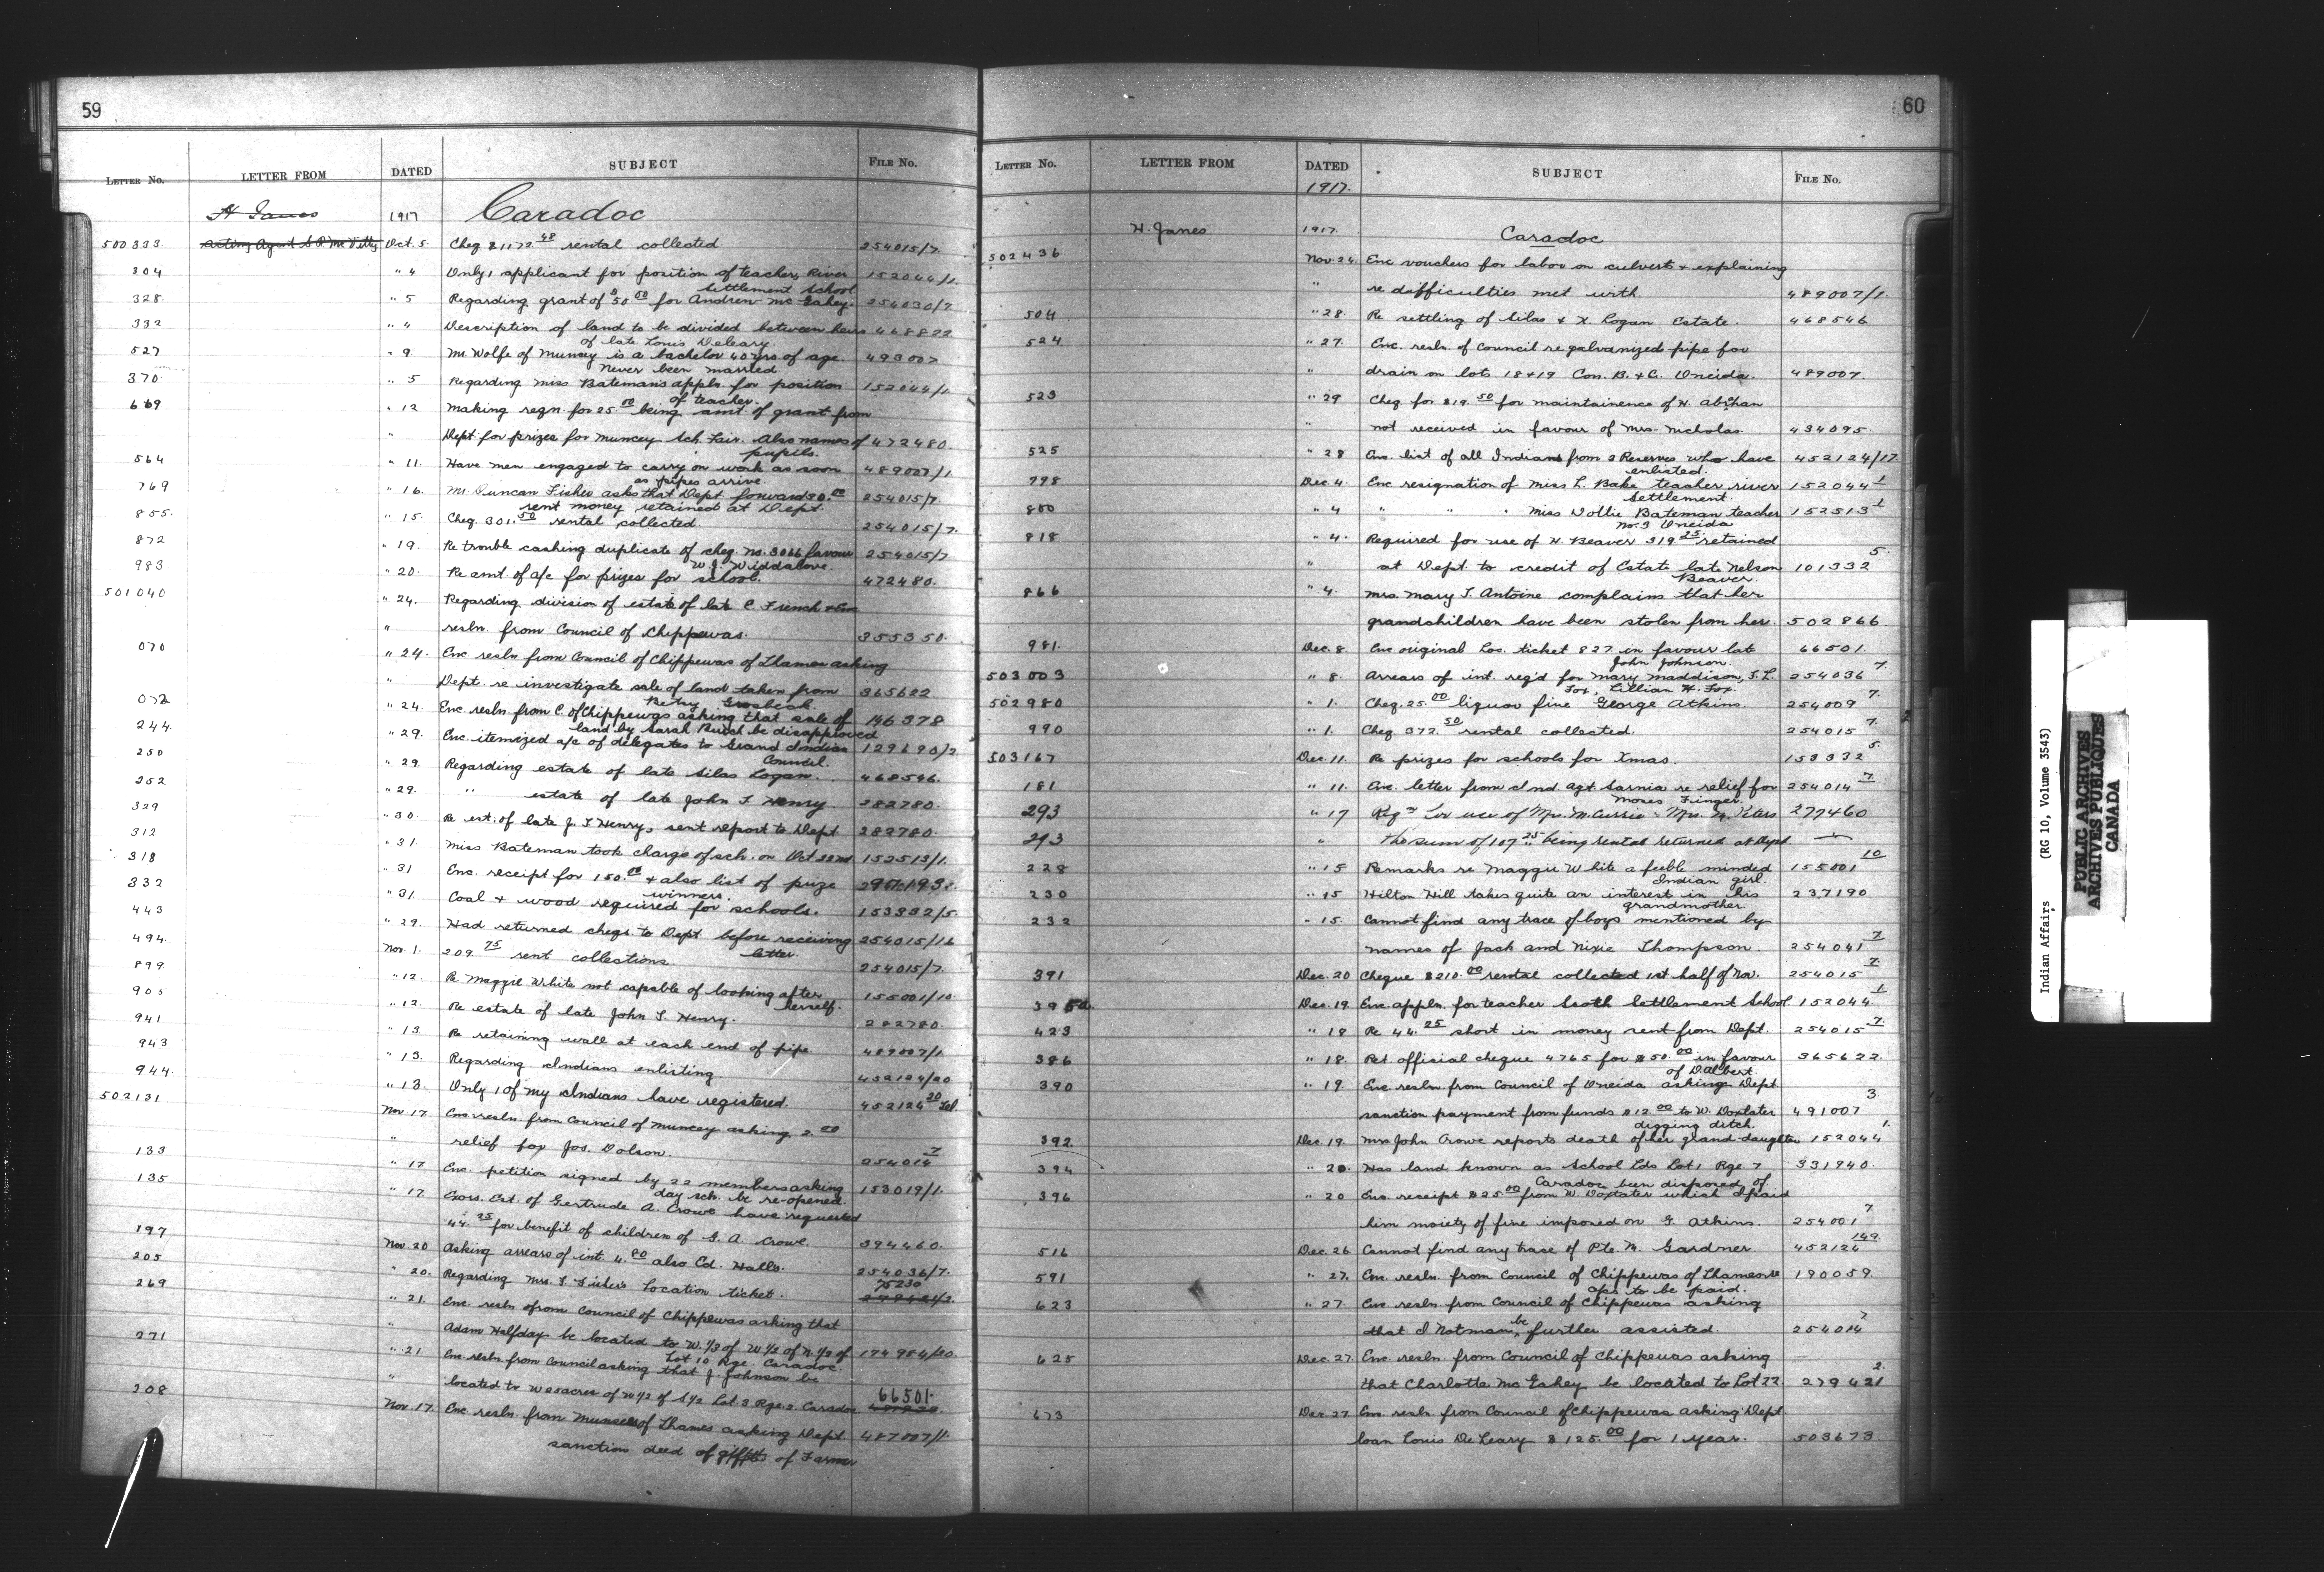 59
LETTER No. LETTER FROM DATED SUBJECT FILE No.
H Janes 1917 Caradoc
500333 Acting Agent S. P. McVitty Oct. 5. Cheq $1172 48 rental collected 254015/7.
304 " 4 Only 1 applicant for position of teacher, River 152044/1.
Settlement School
328 " 5 Regarding grant of $50 00 for Andrew McGahey. 254030/7
332 " 4 Description of land to be divided between heirs 468822
of late Louis Deleary.
527 " 9. Mr. Wolfe of Muncey is a bachelor 40 yrs. of age. 493007
Never been married.
370 " 5 Regarding Miss Bateman's appln. for position 152044/1
of teacher.
669 " 12 Making reqn. for 25. 00 being amt of grant from
" Dept for prizes for Muncey Sch. Fair. Also names of 472480.
pupils.
564 " 11. Have men engaged to carry on work as soon 489007/1
as pipes arrive
769 " 16. Mr. Duncan Fisher asks that Dept forward 30. 00 254015/7.
rent money retained at Dept.
855. " 15. Cheq. 301. 50 rental collected. 254015/7.
872 " 19. Re trouble cashing duplicate of cheq. No. 3066 favour 254015/7
W. J. Widdalove.
983 " 20. Re amt. of a/c for prizes for school. 472480.
501040 " 24. Regarding division of estate of late C. French & Enc
" resln. from Council of Chippewas. 355350.
070 " 24. Enc resln from Council of Chippewas of Thames asking
" Dept. re investigate sale of land taken from 365622
Betsy Grosbeak.
072 " 24. Enc. resln. from C. of Chippewas asking that sale of 146378
land by Sarah Burch be disapproved
244. " 29. Enc. itemized a/c of delegates to Grand Indian 129690/2
Council.
250 " 29. Regarding estate of late Silas Logan. 468546.
252 " 29. " estate of late John T Henry. 282780.
329 " 30. Re est. of late J. T Henry, sent report to Dept 282780.
312 " 31. Miss Bateman took charge of sch. on Oct 22nd 152513/1.
318 " 31 Enc. receipt for 150. 00 & also list of prize
winners.
332 " 31. Coal & wood required for schools. 153332/5.
443 " 29. Had returned cheqs. to Dept before receiving 254015/16
letter.
494. Nov. 1. 209. 75 rent collections. 254015/7.
899 " 12. Re Maggie White not capable of looking after 155001/10
herself.
905 " 12. Re estate of late John T. Henry. 282780.
941 " 13 Re retaining wall at each end of pipe. 489007/1
943 " 13. Regarding Indians enlisting. 452124/20
944. " 13. Only 1 of my Indians have registered. 452124 20 Tel.
502131 Nov. 17. Enc. resln. from Council of Muncey asking 2. 00
" relief for Jos. Dolson. 254014 7
133 " 17 Enc. petition signed by 22 members asking 153019/1.
day sch. be re-opened.
135 " 17. Exors. Est. of Gertrude A. Crowe have requested
44. 25 for benefit of children of G. A. Crowe. 394460.
197 Nov. 20 Asking arrears of int. 4. 80 also Ed. Halls. 254036/7.
205 " 20. Regarding Mrs. T. Fisher's Location ticket. 75230
269 " 21. Enc. resln from Council of Chippewas asking that
" Adam Halfday be located to W. 1/3 of W 1/2 of N. 1/2 of 174984/20.
Lot 10 Rge. Caradoc.
271 " 21 Enc. resln. from Council asking that J. Johnson be
" located to W 25 acres of W 1/2 of S 1/2 Lot 3 Rge. 2 Caradoc 66501.
208 Nov. 17. Enc. resln. from Munsees of Thames asking Dept 487007/1.
sanction deed of gifts of Farmer
60
LETTER No. LETTER FROM DATED SUBJECT FILE No.
1917.
H. Janes 1917. Caradoc
502436 Nov. 24. Enc vouchers for labor on culvert & explaining
" re difficulties met with. 489007/1.
504 " 28. Re settling of Silas & X. Logan Estate. 468546
524 " 27. Enc. resln. of Council re galvanized pipe for
" drain on lots 18 & 19 Con. B. & C. Oneida. 489007.
523 " 29 Cheq for $19. 50 for maintainence of N. Abrhan
" not received in favour of Mrs. Nicholas. 434095.
525 " 28 Enc. list of all Indians from 2 Reserves who have 452124/17
enlisted.
798 Dec. 4. Enc resignation of Miss L. Bake teacher river 152044 1
Settlement
800 " 4 " " " Miss Dollie Bateman teacher 152513 1
No. 3 Oneida
818 " 4. Required for use of N. Beaver 319 25 retained
" at Dept. to credit of Estate late Nelson 101332 5.
Beaver.
866 " 4. Mrs. Mary T. Antoine complains that her
grandchildren have been stolen from her. 502866.
981. Dec. 8. Enc original Loc. ticket 827 in favour late 66501.
John Johnson.
503003 " 8. Arrears of int. req'd for Mary Maddison, S. L. 254036 7.
Fox, Lillian H. Fox.
502980 " 1. Cheq. 25. 00 liquor fine George Atkins 254009 7.
990 " 1. Cheq 372. 50 rental collected. 254015 7.
503167 Dec. 11. Re prizes for schools for Xmas. 153332 5.
181 " 11. Enc. letter from Ind. Agt. Sarnia re relief for 254014 7
Moses Finger.
293 " 17 Reqn for use of Mrs. McCurrie & Mrs. M. Peters 277460
293 " the sum of 107 25 being rental returned at Dept. "
228 " 15 Remarks re Maggie White a feeble minded 155001 10
Indian girl.
230 " 15 Hilton Hill takes quite an interest in his 237190
grandmother.
232 " 15. Cannot find any trace of boys mentioned by
names of Jack and Nixie Thompson. 254041 7
391 Dec. 20 Cheque $210. 00 rental collected 1st half of Nov. 254015 7.
395a. Dec. 19. Enc. appln. for teacher Scoth Settlement School 152044 1
423 " 18 Re 44. 25 short in money sent from Dept. 254015 7
386 " 18. Ret. official cheque 4765 for $50. 00 in favour 365622.
of D. Albert.
390 " 19. Enc. resln. from Council of Oneida asking Dept
sanction payment from funds $12 00 to W. Doxtater 491007 3.
digging ditch.
392 Dec. 19. Mrs. John Crowe reports death of her grand-daughter 152044 1.
394 " 20. Has land known as School Lds Lot 1 Rge 7 331940.
Caradoc been disposed of.
396 " 20 Enc. receipt $25 00 from W Doxtater which I paid
him moiety of fine imposed on G. Atkins. 254001 7.
516 Dec. 26 Cannot find any trace of Pte. M. Gardner 452124 149
591 " 27. Enc. resln. from Council of Chippewas of Thames re 190059.
a/cs to be paid.
623 " 27. Enc resln. from Council of Chippewas asking
that I Notman be further assisted. 254014 7
625 Dec. 27. Enc resln. from Council of Chippewas asking
that Charlotte McGahey be located to Lot 22 279421 2.
673 Dec. 27 Enc. resln from Council of Chippewas asking Dept
loan Louis DeLeary $125. 00 for 1 year. 503673.
Indian Affairs (RG 10, Volume 3543)
PUBLIC ARCHIVES
ARCHIVES PUBLIQUES
CANADA